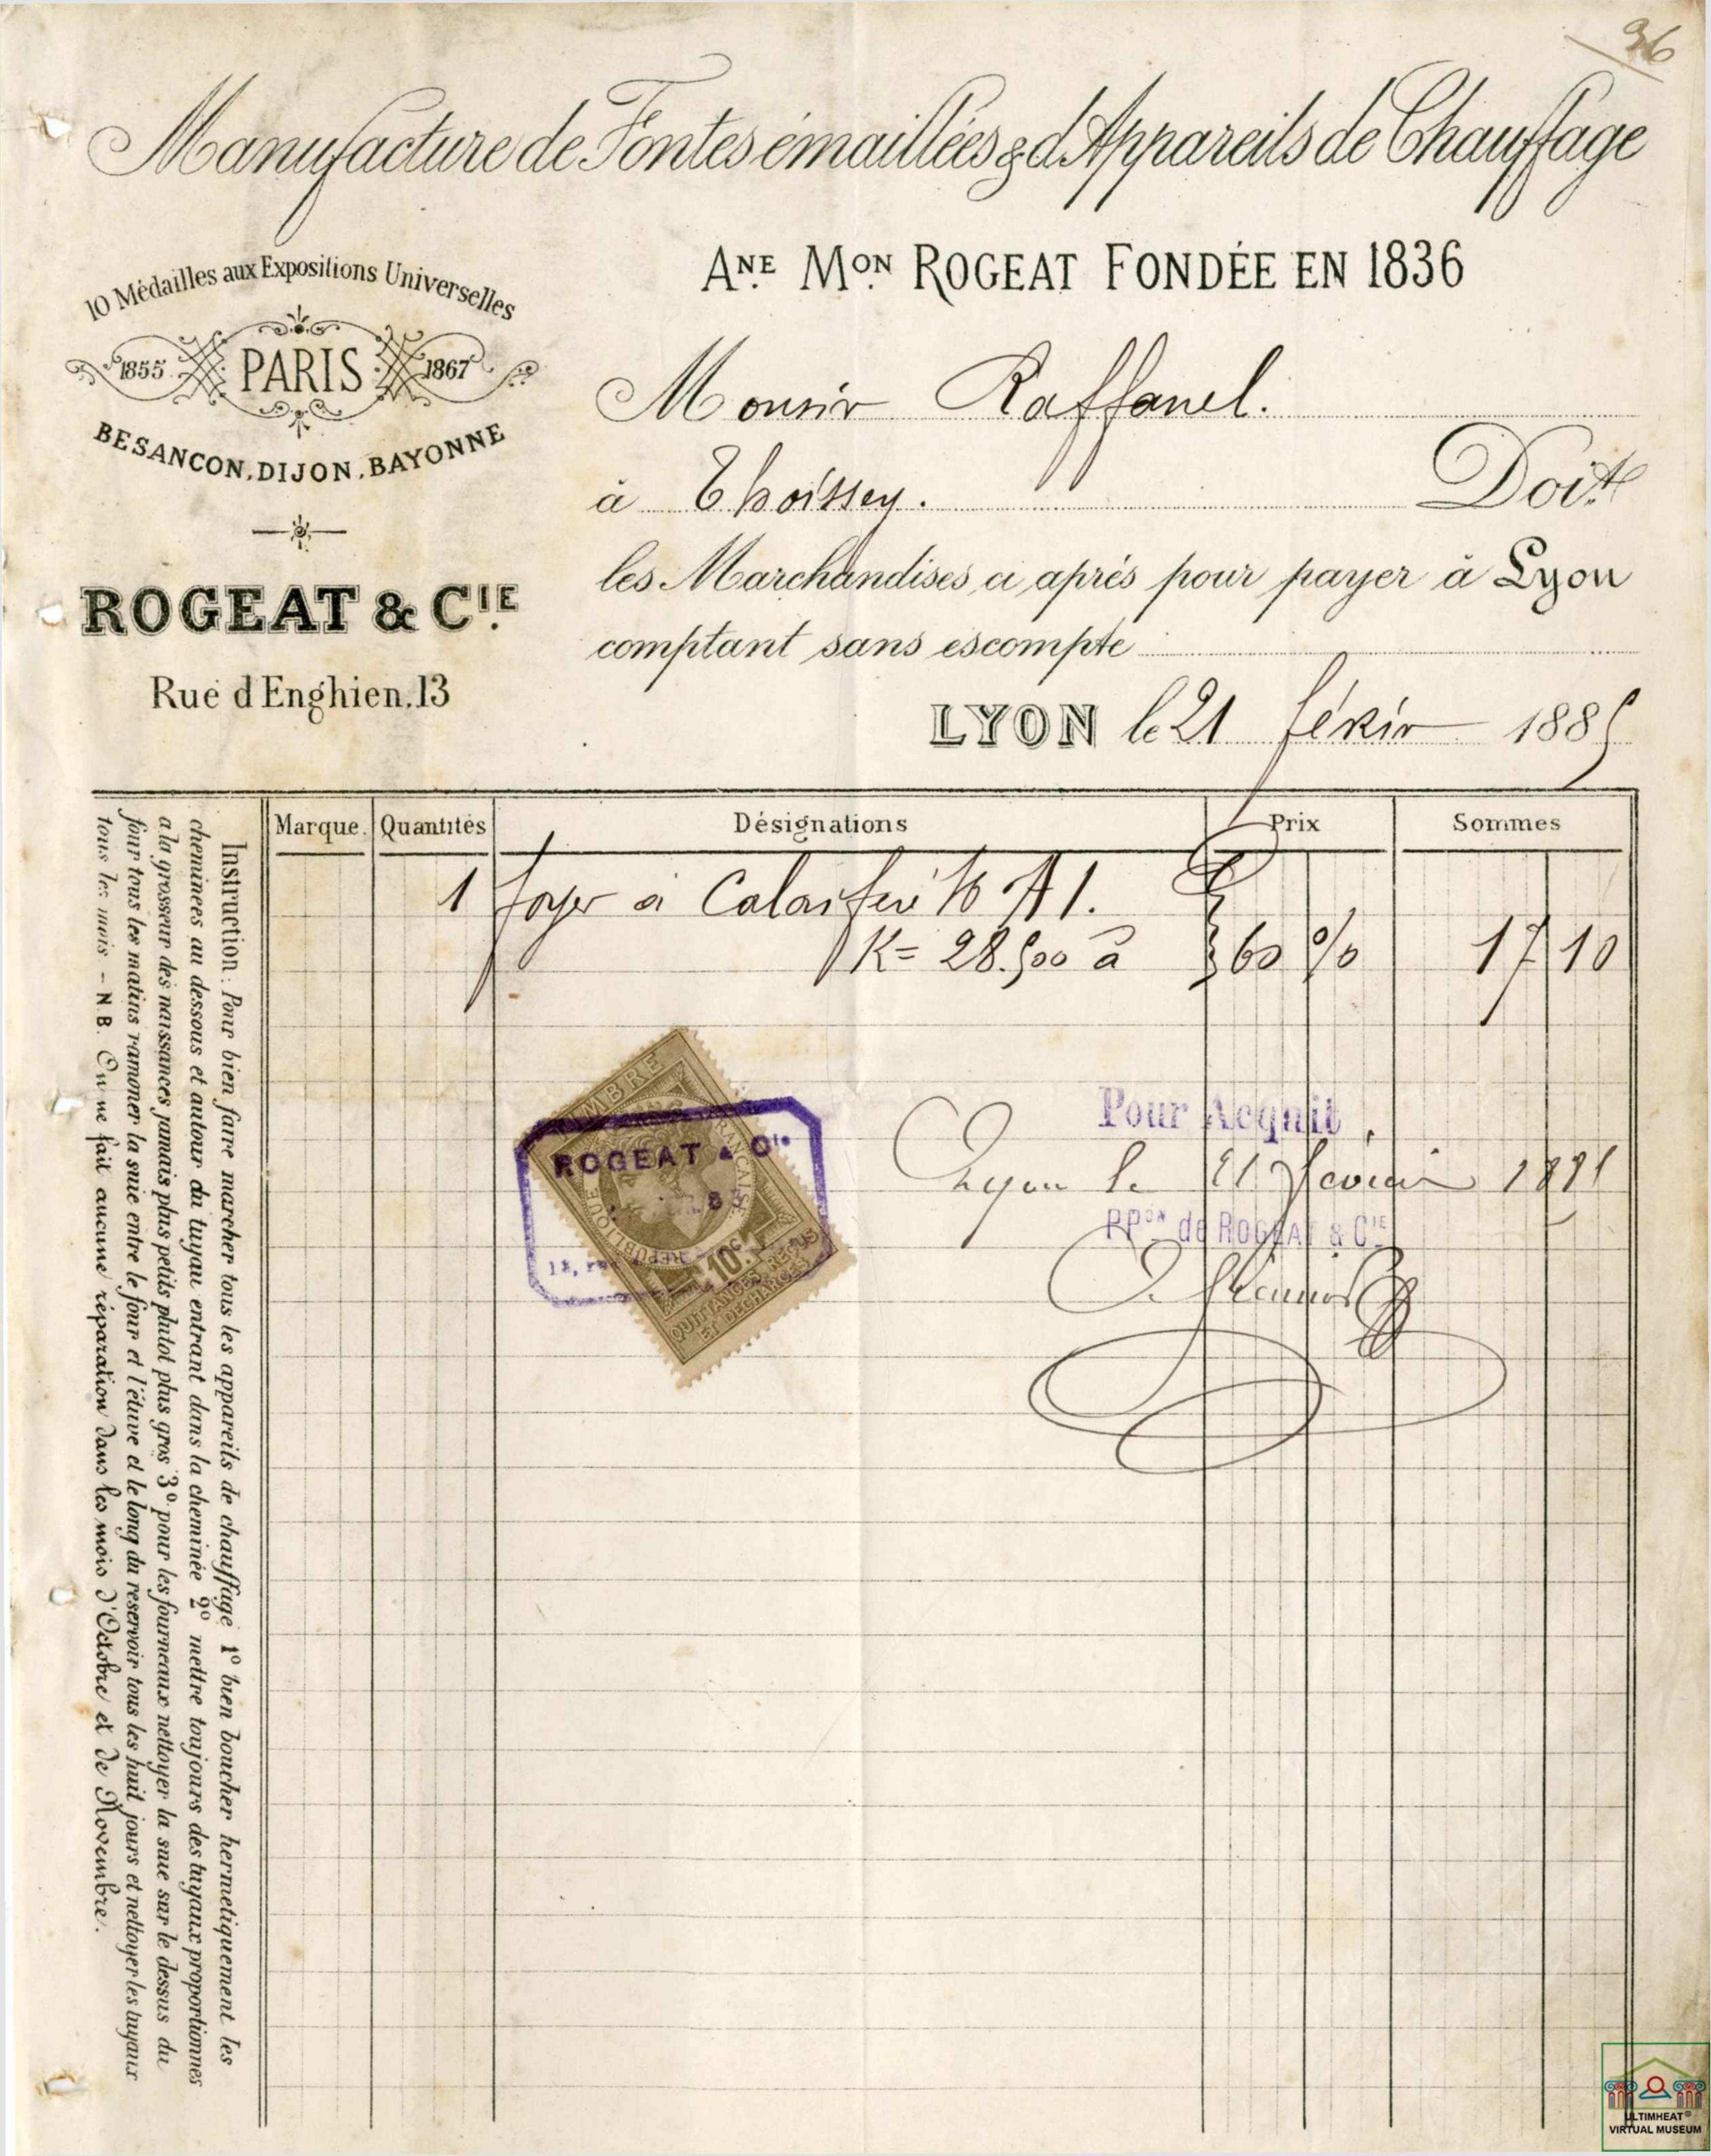 36
Manufacture de Fontes émaillées & d'Appareils de Chauffage
ANE MON ROGEAT FONDÉE EN 1836
10 Médailles aux Expositions Universelles
1855 PARIS 1867
BESANCON, DIJON, BAYONNE
ROGEAT & CIE
Rue d'Enghien, 13
Monsieur Raffanel.
à Thoissey. Doit
les Marchandises ci après pour payer à Lyon
comptant sans escompte
LYON le 21 février 1885
Marque. Quantités Désignations Prix Sommes
1 foyer à Calorifère No A 1.
K = 28.500 à 60 % 17 10
TIMBRE
RÉPUBLIQUE FRANÇAISE
10c
QUITTANCES REÇUS
ET DÉCHARGES
ROGEAT & Cie
Pour Acquit
Lyon le 21 février 1885
PPon de ROGEAT & CIE
Instruction : Pour bien faire marcher tous les appareils de chauffage 1º bien boucher hermetiquement les
cheminées au dessous et autour du tuyau entrant dans la cheminée 2º mettre toujours des tuyaux proportionnes
a la grosseur des naissances jamais plus petits plutot plus gros 3º pour les fourneaux nettoyer la suie sur le dessus du
four tous les matins ramoner la suie entre le four et l'étuve et le long du reservoir tous les huit jours et nettoyer les tuyaux
tous les mois - N.B. On ne fait aucune réparation dans les mois d'Octobre et de Novembre.
ULTIMHEAT®
VIRTUAL MUSEUM